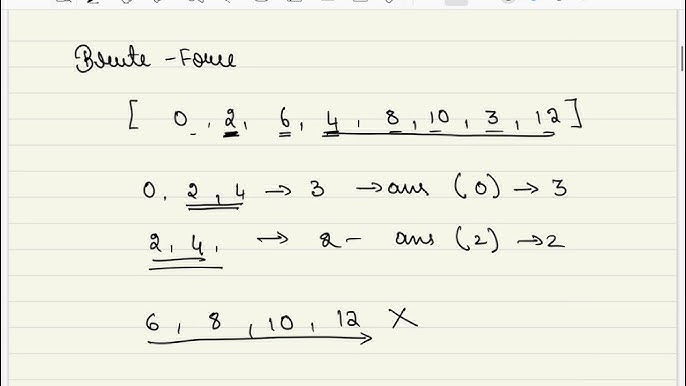 Brute - Force
[ 0, 2, 6, 4, 8, 10, 3, 12 ]
0, 2, 4 → 3 → ans (0) → 3
2, 4, → 2 - ans (2) → 2
6, 8, 10, 12 X